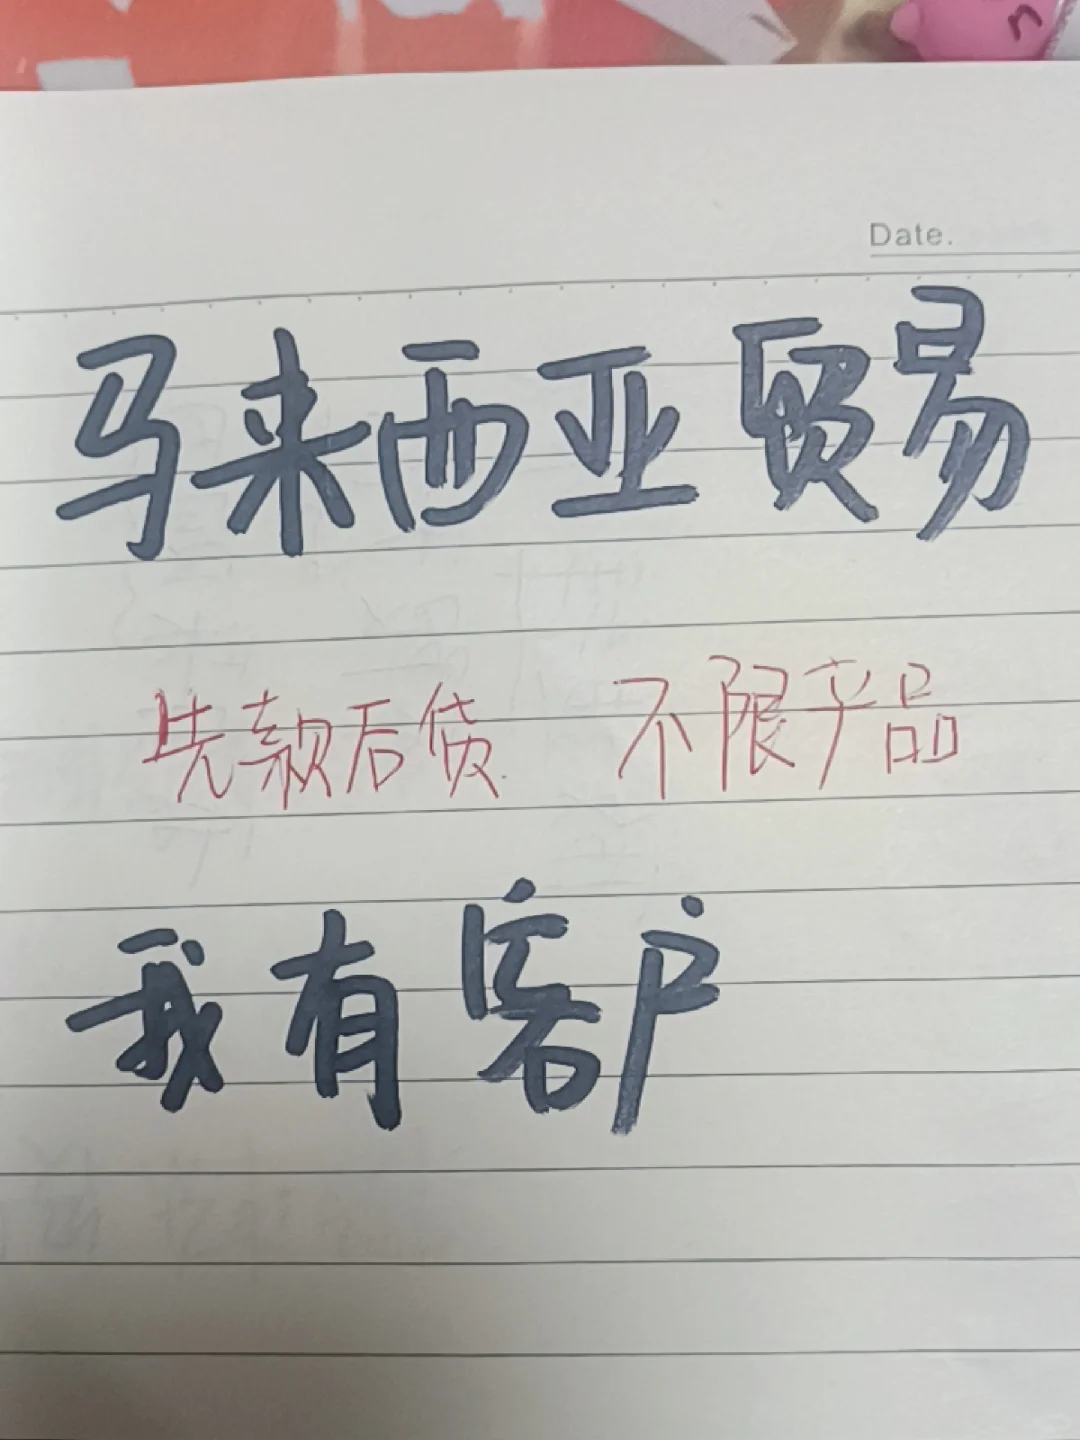 Date.
马来西亚贸易
先款后货 不限产品
我有客户